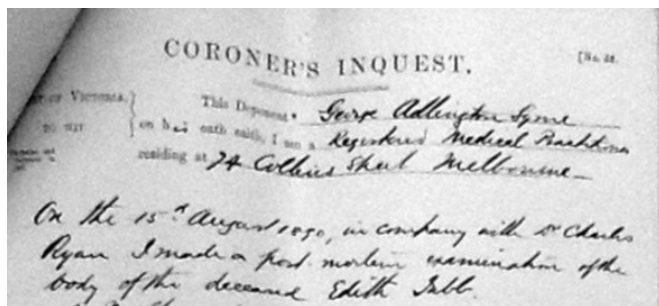 CORONER'S INQUEST.
[No. 22.
OF VICTORIA, This Deponent George Adlington Syme
TO WIT } on his oath saith, I am a Registered Medical Practitioner
residing at 74 Collins Street Melbourne
On the 15th August 1890, in company with Dr Charles
Ryan I made a post mortem examination of the
body of the deceased Edith